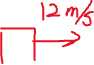 12 m/s